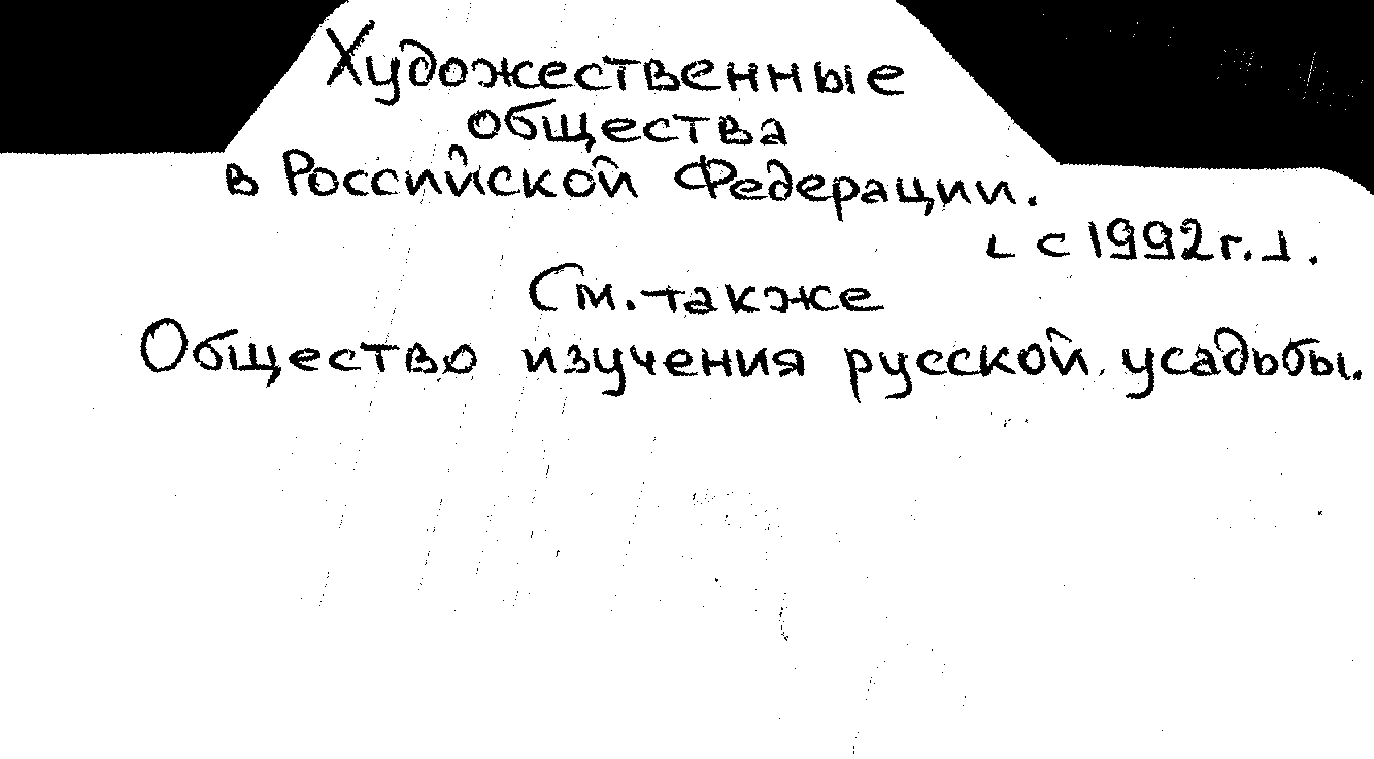 Художественные
общества
в Российской Федерации.
[ с 1992 г. ].
См. также
Общество изучения русской усадьбы.